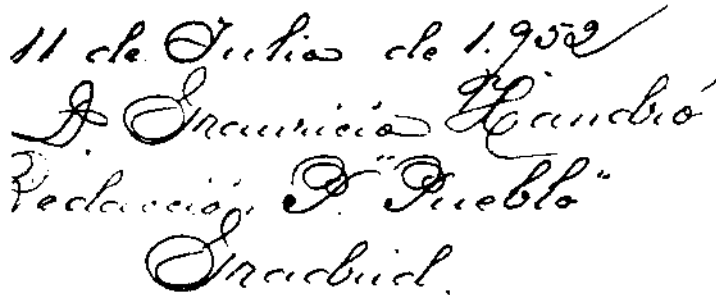 11 de Julio de 1.952
D. Mauricio Xandró
Redacción P. "Pueblo"
Madrid.